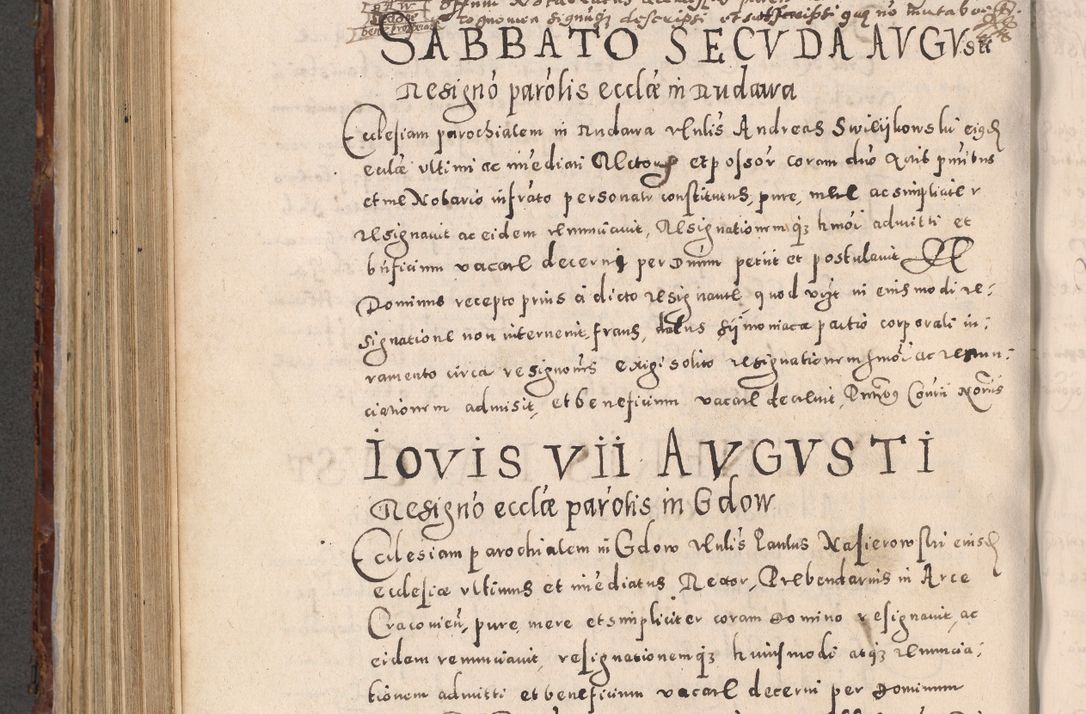 cognomen signumq descripsi et subscripsi
SABBATO SECVDA AVGUsti
Resigno parolis ecclæ in Rudawa
Ecclesiam parochialem in Rudawa vnlis Andreas Swilijkowski eiusd
ecclæ vltimi ac imediati Rector et possor coram duo
et me Notario infrato personalr constitutus, pure, mere ac simpliciter
resignauit ac eidem renunciauit, Resignationemq3 hmoi admitti et
bnficium vacare decerni per Dnum petiit et postulauit
Dominus recepto prius a dicto resignante, quod in eiusmodi re,
signatione non interuenit, fraus, dolus sijmoniaca pactio corporali iu,
ramento circa resignoines exigi solito resignationem hmoi ac renun,
ciationem admisit, et beneficium vacare decreuit,
IOVIS VII AVGVSTI
Resigno ecclæ parolis in Gdow
Ecclesiam parochialem in Gdow vnlis Paulus Nasierowski eiusd
ecclesiæ vltimus et imediatus Rector, Prebendarius in Arce
Cracouien, pure, mere et simpliciter coram Domino resignauit, ac
eidem renunciauit, resignationemq3 huiusmodi atq3 renuncia,
tionem admitti et beneficium vacare decerni per Dominum